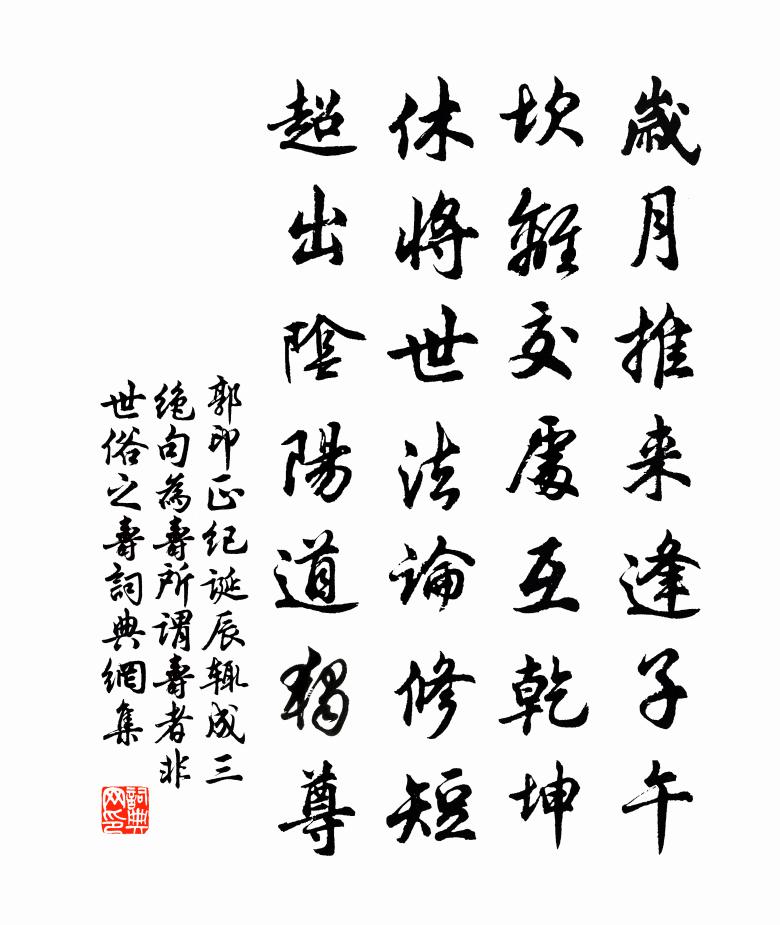 歲月推来逢子午
坎離交處互乾坤
休將世法論修短
超出陰陽道獨尊
郭印正纪誕辰辄成三
绝句為壽所谓壽者非
世俗之壽詞典網集
詞典网印